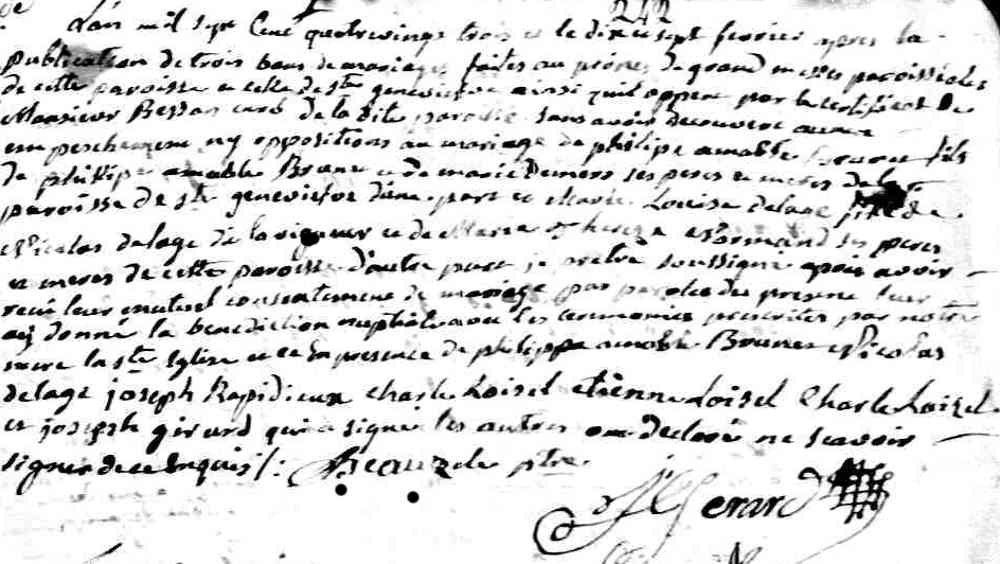 242
L'an mil sept Cent quatrevingt trois et le dix et sept fevrier apres la
publication de trois bans de mariages faites au prônes de grand messes paroissiales
de cette paroisse et celle de ste genevieve ainsi quil appert par le certificat de
Monsieur Bessan curé de la dite paroisse sans avoir decouvert aucun
empeschement ny oppositions au mariage de philipe amable fils
de philipe amable Brunet et de marie Demers ses peres et meres de la
paroisse de ste genevieve d'une part et Marie Louise delage fille de
Nicolas delage de lavigueur et de Maria therese Normand ses peres
et meres de cette paroisse d'autre part je pretre soussigné apres avoir
recu leur mutuel consentement de mariage par paroles des present leur
ay donné la benediction nuptiale avec les ceremonies prescrites par notre
mere la ste Eglise et ce en presence de philippe amable Brunet Nicolas
delage joseph Rapidieux charle Loisel etienne Loisel Charle Loisel
et joseph girard qui a signé les autres ont declaré ne scavoir
signer de ce Enquis /: ptre
J Gerard